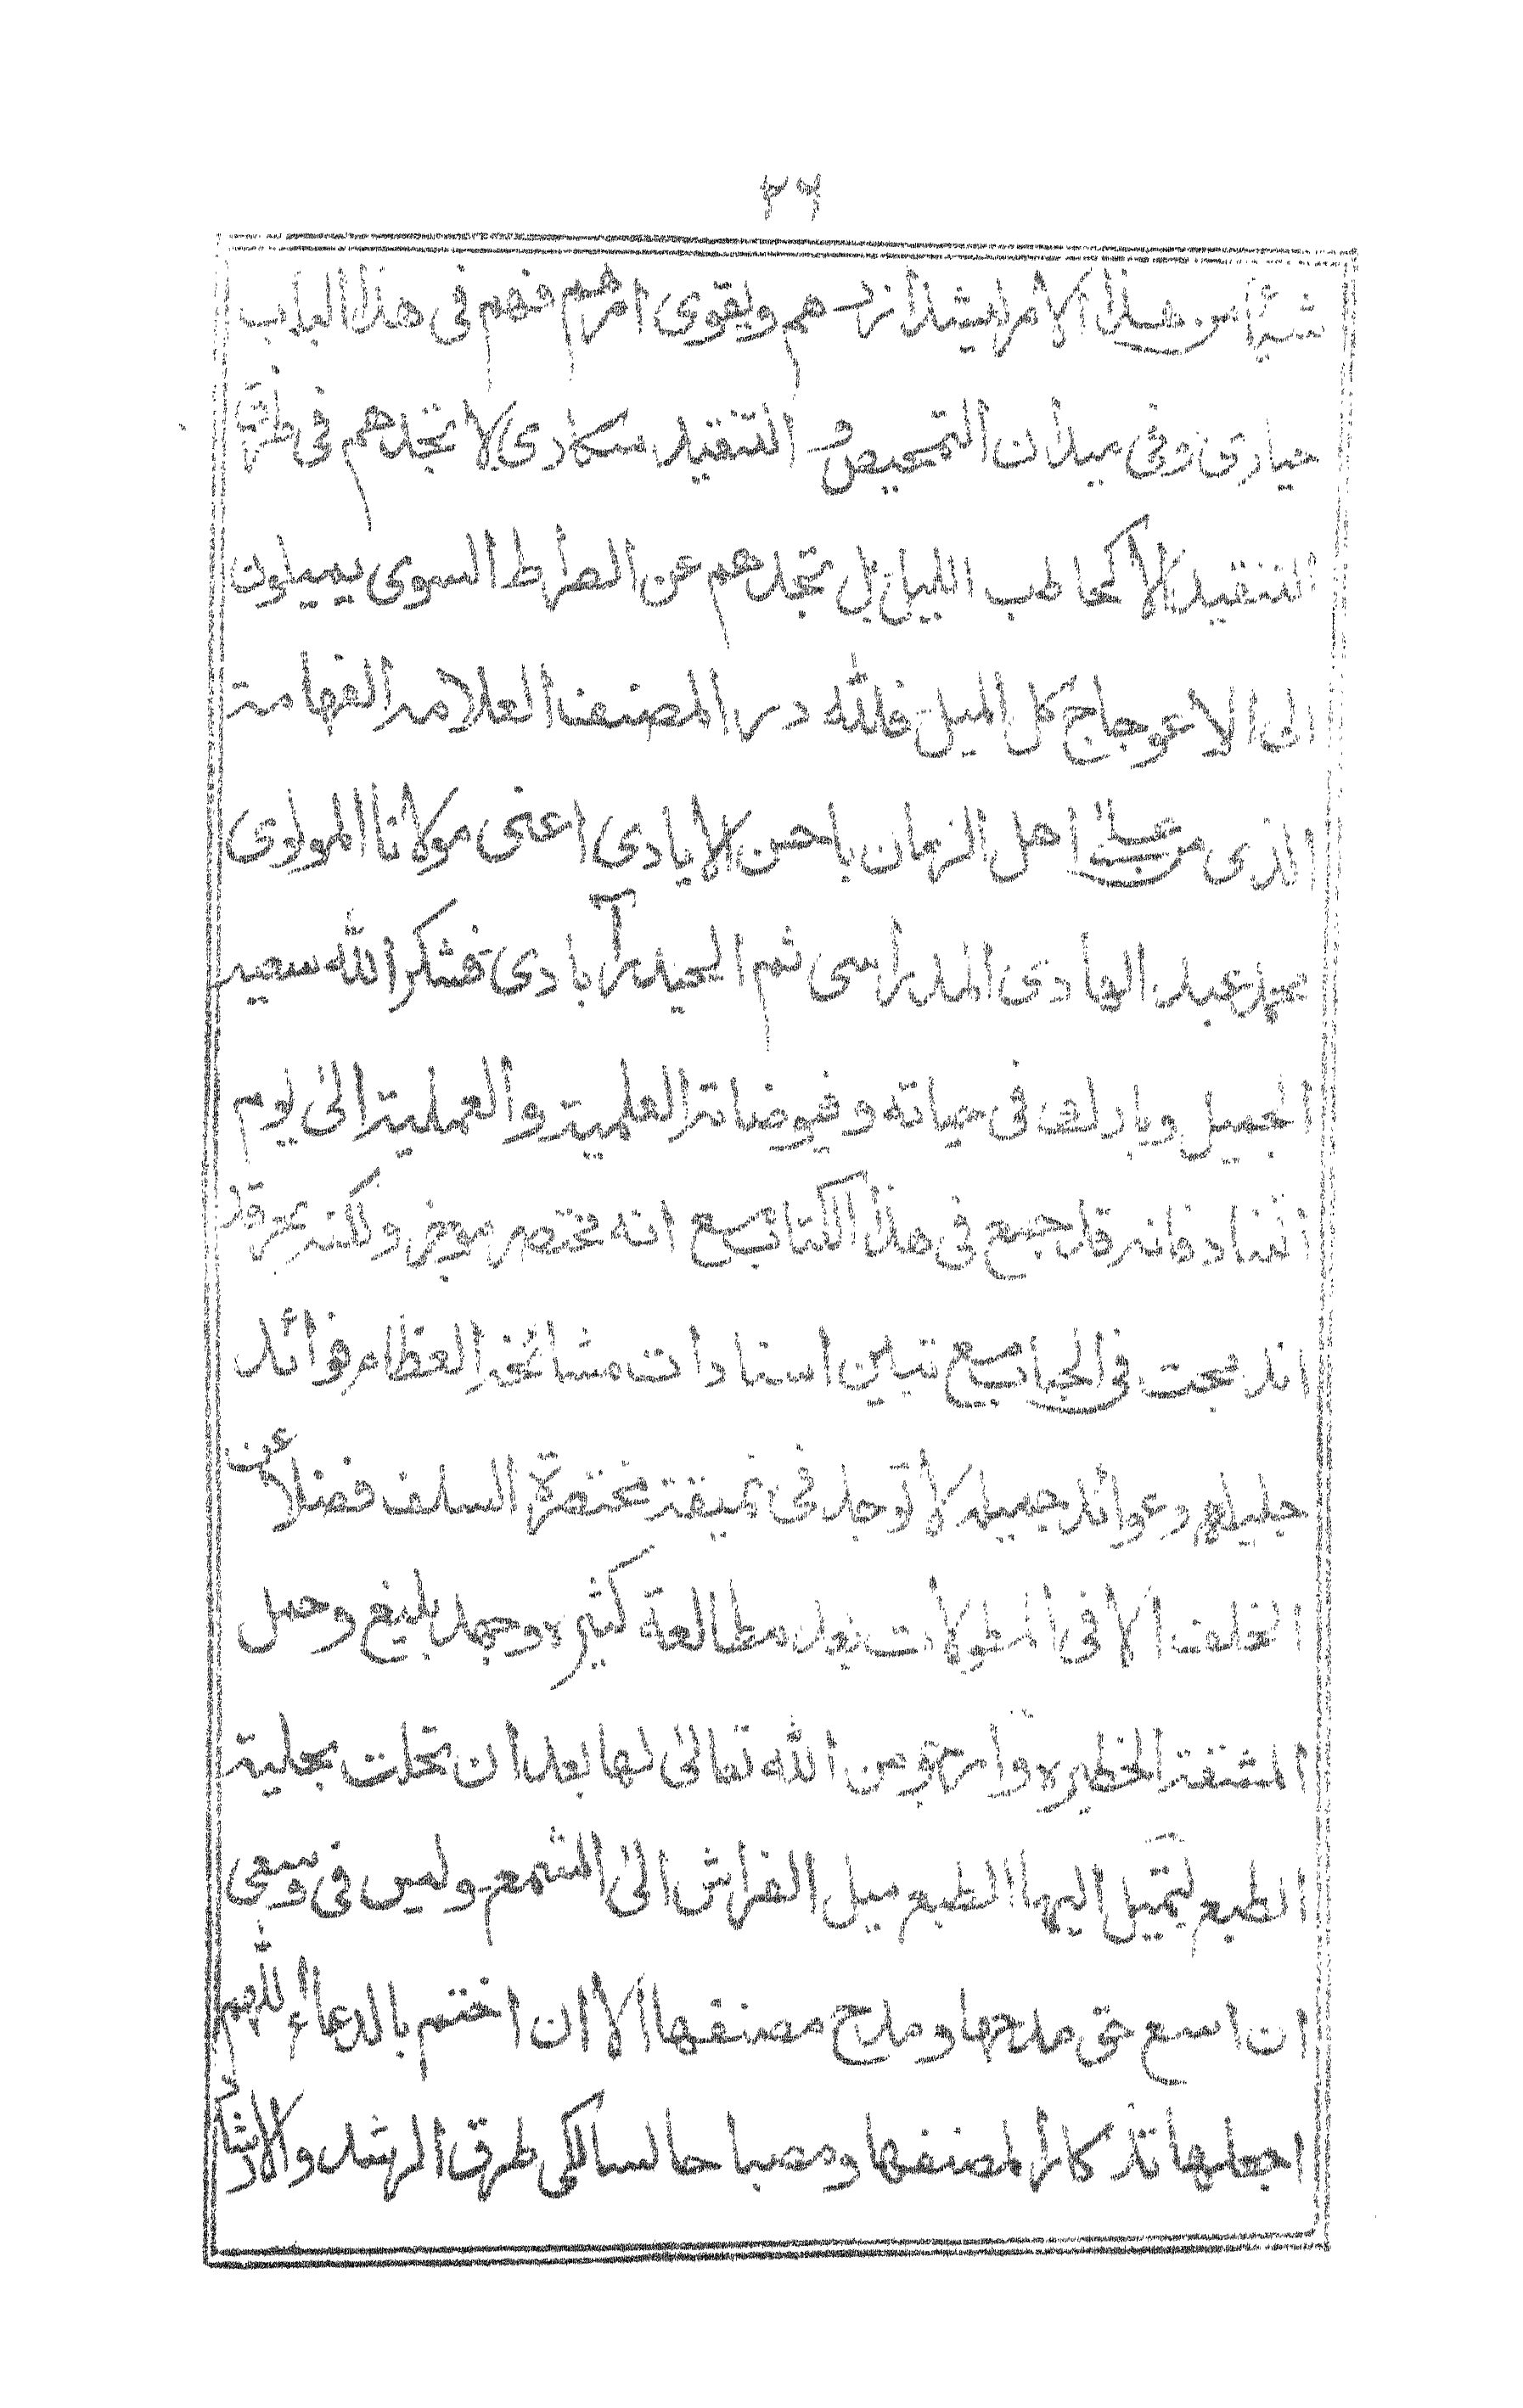 ٢٦
شيئا من هذا الامر ليشد ازرهم ويقوى امرهم فهم فى هذا الباب
حيارى وفى ميدان التمحيص و التنقيد سكارى لا تجدهم فى طرق
التنقيد الا كحاطب الليل بل تجدهم عن الصراط السوى يميلون
الى الاعوجاج كل الميل فللّٰه در المصنف العلامة الفهامة
الذى من على اهل الزمان باحسن الايادى اعنى مولانا المولوى
محمد عبد الهادى المدراسى ثم الحيدرآبادى فشكر اللّٰه سعيه
الجميل وبارك فى حياته وفيوضاته العلمية والعملية الىٰ يوم
التناد فانه قد جمع فى هذا الكتاب مع انه مختصر موجز ولكنه بحر قد
اندمجت فى الجباب مع تبيين اسنادات مشائخه العظام فوائد
جليلة وعوائد جميلة لا توجد فى نميقة مختصرة السلف فضلا عن
الخلف الا فى المطولات بعد مطالعة كثيره وجهد بليغ وحمل
المشقة الخطيره وارجو من اللّٰه تعالىٰ لها بعد ان تحلت بحلية
الطبع لتميل اليها الطبع ميل الفراش الىٰ الشمع وليس فى وسعى
ان اسع حق مدحها ومدح مصنفها الا ان اختم بالدعاء اللّٰهم
اجعلها تذكارا لمصنفها ومصباحا لسالكى طرق الرشد والارشاد